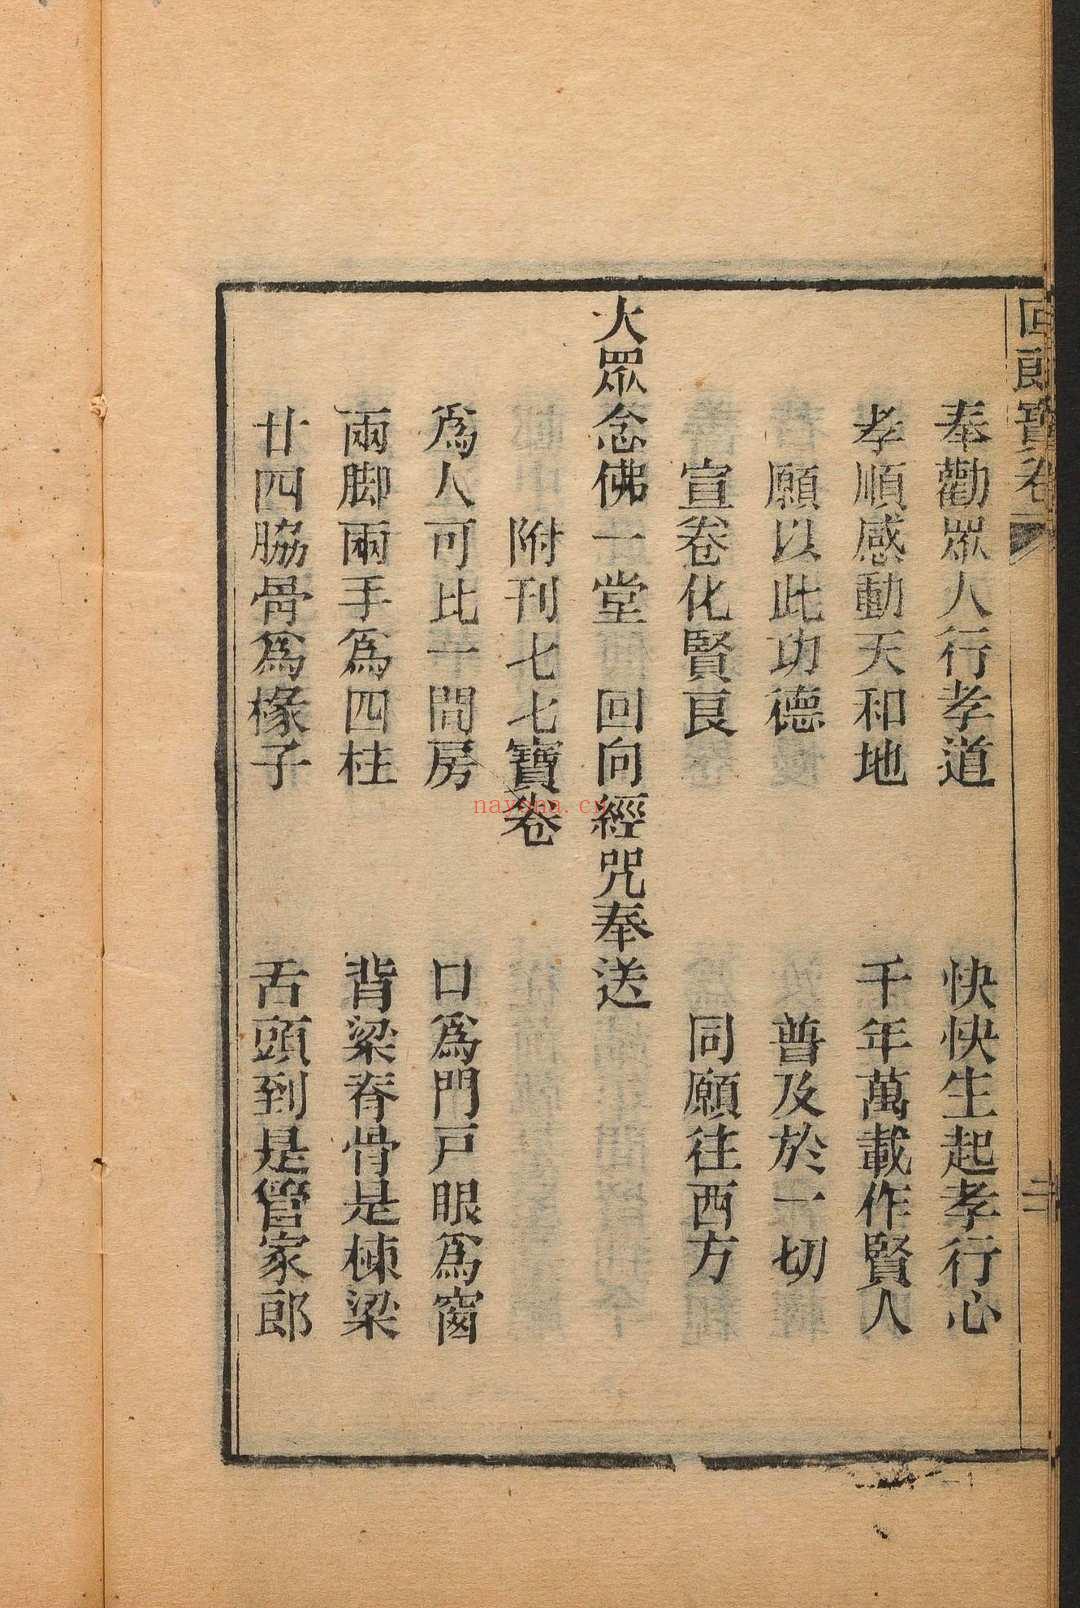 回郎寶卷
二
奉勸眾人行孝道　快快生起孝行心
孝順感動天和地　千年萬載作賢人
願以此功德　普及於一切
宣卷化賢良　同願往西方
大眾念佛一堂　回向經咒奉送
附刊七七寶卷
為人可比一間房　口為門戶眼為窗
兩脚兩手為四柱　背梁脊骨是棟梁
廿四脇骨為椽子　舌頭到是管家郎